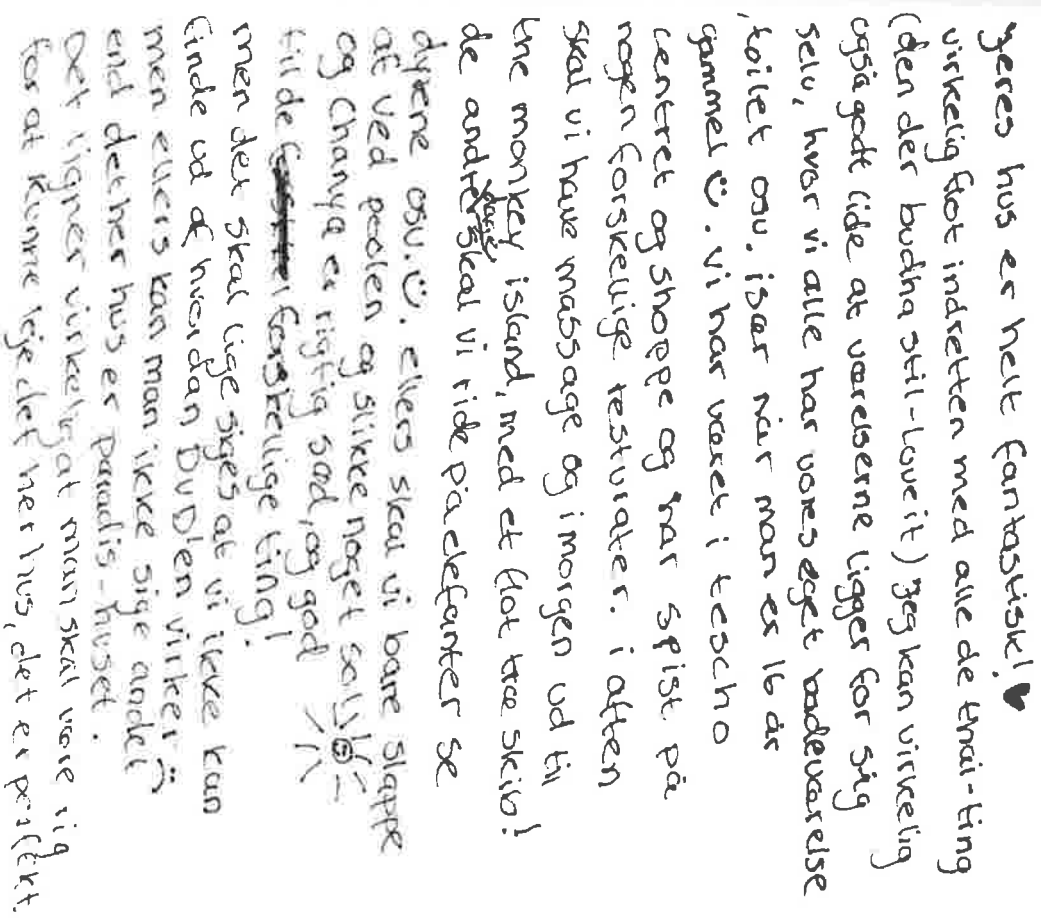 Jeres hus er helt fantastisk! ♥
virkelig flot indretten med alle de thai-ting
(den der budha stil-Love it) Jeg kan virkelig
også godt lide at værelserne ligger for sig
selv, hvor vi alle har vores eget badeværelse
, toilet osv. især når man er 16 år
gammel ☺. vi har været i tescho
centret og shoppe og har spist på
nogen forskellige resturater. i aften
skal vi have massage og i morgen ud til
the monkey island, med et flot træ skib!
de andre dage skal vi ride på elefanter se
dyrene osv. ☺. ellers skal vi bare slappe
af ved poolen og slikke noget sol!
og Chanya er rigtig sød, og god
til de forskellige ting!
men det skal lige siges at vi ikke kan
finde ud af hvordan DVD'en virker ☹
men ellers kan man ikke sige andet
end det her hus er paradis-huset.
Det ligner virkelig at man skal være rig
for at kunne leje det her hus, det er perfekt.